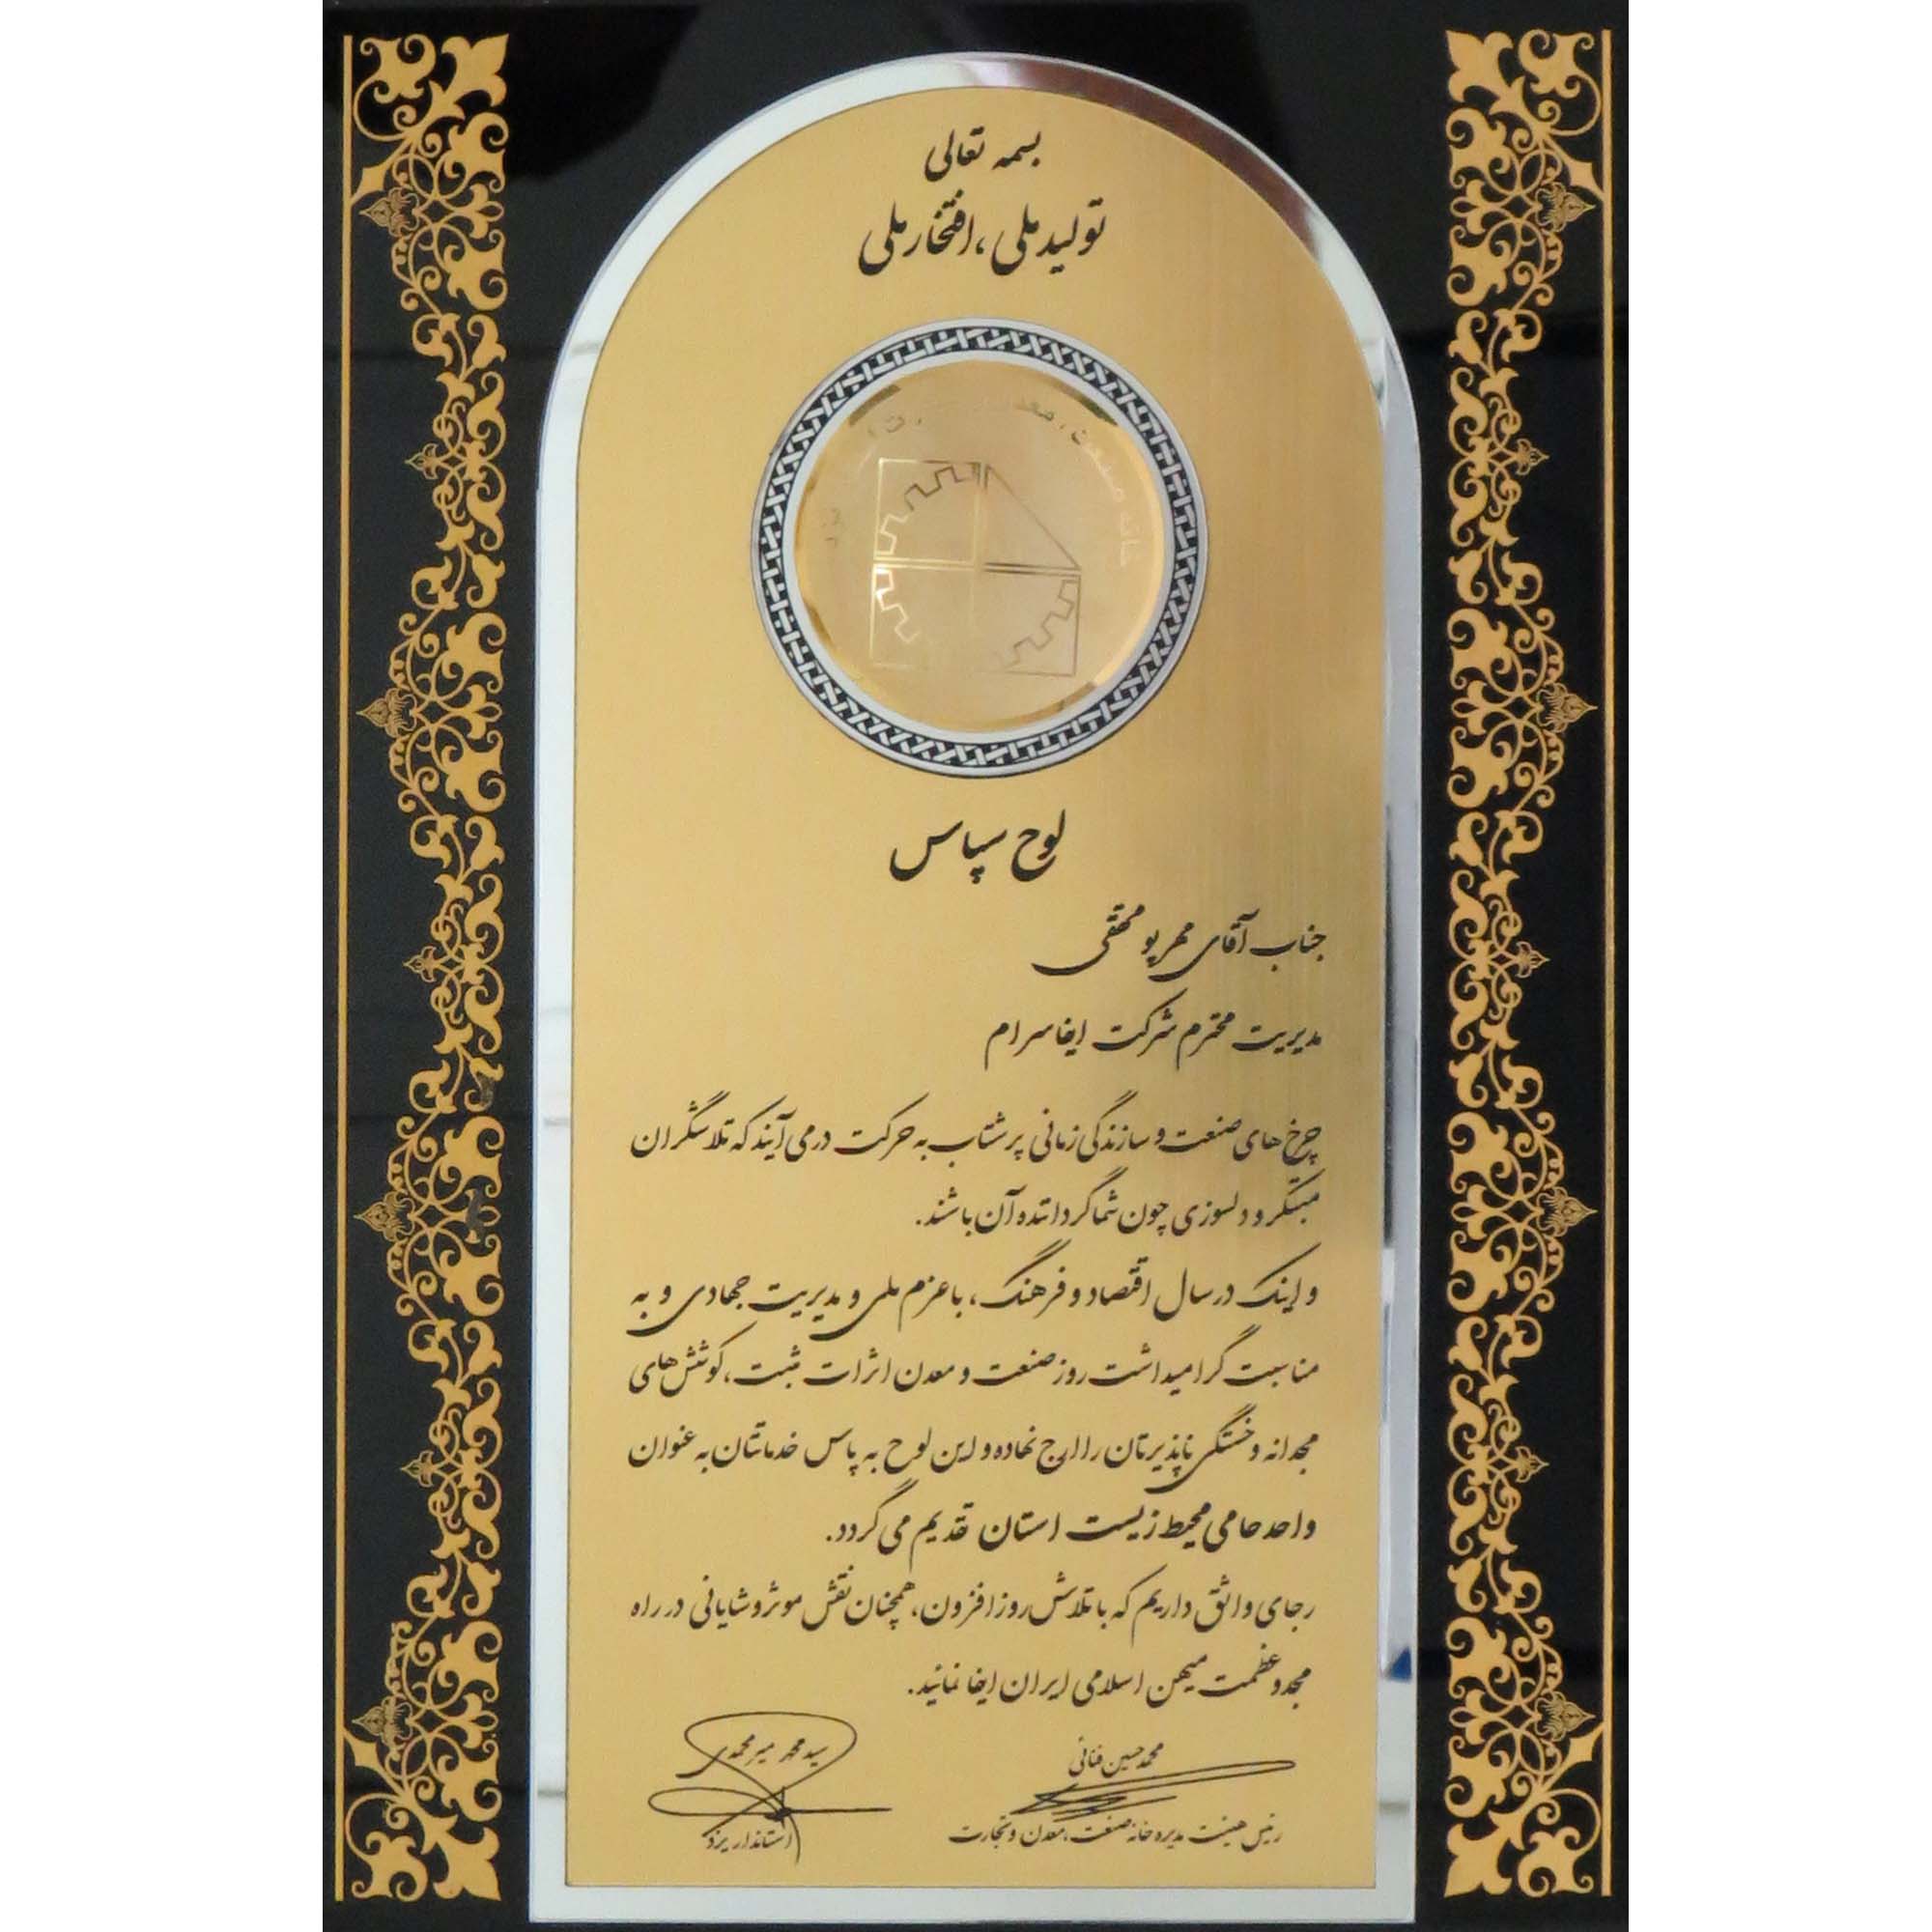 بسمه تعالی
تولید ملی، افتخار ملی
خانه صنعت، معدن
یزد
لوح سپاس
جناب آقای مهرپو محققی
مدیریت محترم شرکت ایفاسرام
چرخ های صنعت و سازندگی زمانی پرشتاب به حرکت در می آیند که تلاشگران
مبتکر و دلسوزی چون شما گرداننده آن باشند.
و اینک در سال اقتصاد و فرهنگ، با عزم ملی و مدیریت جهادی و به
مناسبت گرامیداشت روز صنعت و معدن اثرات مثبت، کوشش های
مجدانه و خستگی ناپذیرتان را ارج نهاده و این لوح به پاس خدماتتان به عنوان
واحد حامی محیط زیست استان تقدیم می گردد.
رجای واثق داریم که با تلاش روز افزون، همچنان نقش موثر و شایانی در راه
مجد و عظمت میهن اسلامی ایران ایفا نمائید.
محمد حسین فنائی
رئیس هیئت مدیره خانه صنعت، معدن و تجارت
سید محمد میرمحمدی
استاندار یزد